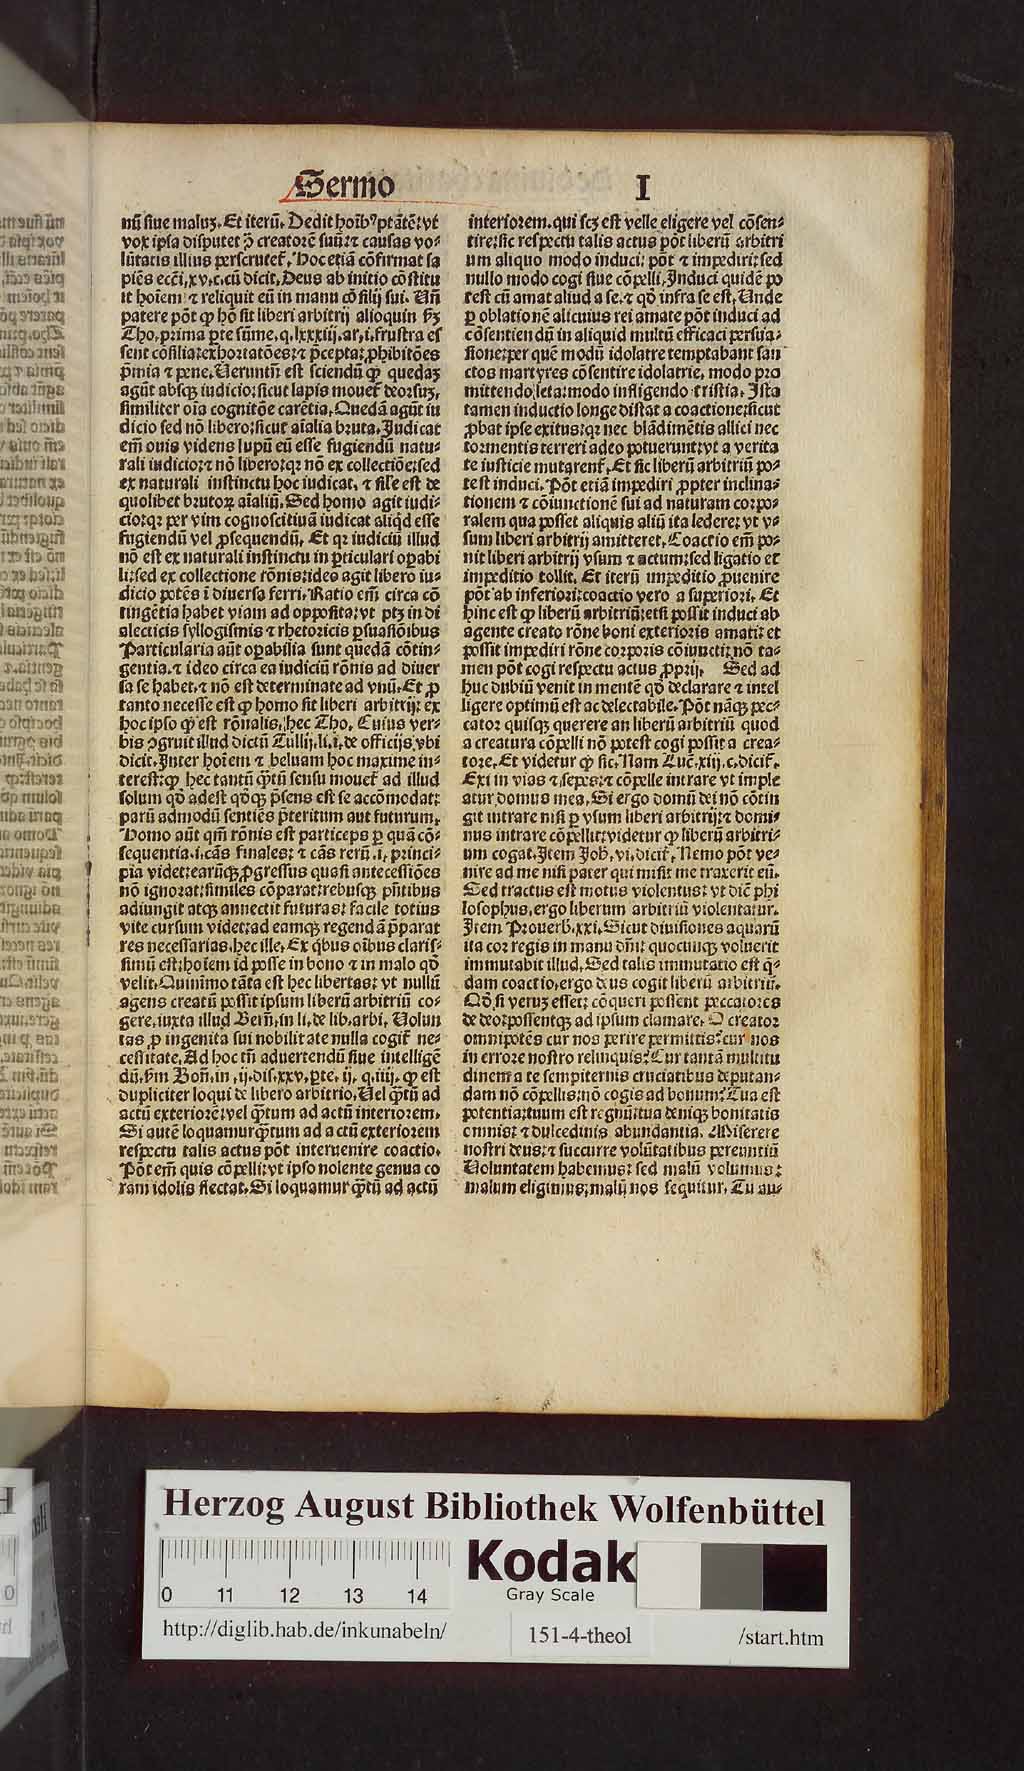 Sermo I
nū siue maluz. Et iterū. Dedit hoībꝰ ptātē: vt
vox ipsa disputet ꝓ creatorē suū: ⁊ causas vo⸗
lūtatis illius perscrutet̄. Hoc etiā cōfirmat sa
piēs ecc̄i. xv. c. cū dicit. Deus ab initio cōstitu
it hoīem: ⁊ reliquit eū in manu cōsilij sui. Uñ
patere pōt ꝙ hō sit liberi arbitrij alioquin ẜm
Tho. prima ꝑte sūme. q. lxxxiij. ar. i. frustra es
sent cōsilia: exhortatōes: ⁊ p̄cepta: ꝓhibitōes
p̄mia ⁊ pene. Ueruntn̄ est sciendū ꝙ quedaz
agūt absqꝫ iudicio: sicut lapis mouet̄ deorsuz.
similiter oīa cognitōe carētia. Quedā agūt iu
dicio sed nō libero: sicut aīalia bruta. Judicat
em̄ ouis videns lupū eū esse fugiendū natu⸗
rali iudicio: ⁊ nō libero: qꝛ nō ex collectiōe: sed
ex naturali instinctu hoc iudicat. ⁊ sil̄e est de
quolibet brutoꝝ aīaliū. Sed homo agit iudi⸗
cio: qꝛ per vim cognoscitiuā iudicat aliqd̄ esse
fugiendū vel ꝓsequendū. Et qꝛ iudiciū illud
nō est ex naturali instinctu in ꝑticulari oꝑabi
li: sed ex collectione rōnis: ideo agit libero iu⸗
dicio potēs ī diuersa ferri. Ratio em̄ circa cō
tingētia habet viam ad opposita: vt ptꝫ in di
alecticis syllogismis ⁊ rhetoricis ꝑsuasiōibus
Particularia aūt oꝑabilia sunt quedā cōtin⸗
gentia. ⁊ ideo circa ea iudiciū rōnis ad diuer
sa se habet. ⁊ nō est determinate ad vnū. Et ꝓ
tanto necesse est ꝙ homo sit liberi arbitrij: ex
hoc ipso ꝙ est rōnalis. hec Tho. Cuius ver⸗
bis ꝯgruit illud dictū Tullij. li. i. de officijs vbi
dicit. Inter hoīem ⁊ beluam hoc maxime in⸗
terest: ꝙ hec tantū q̄tū sensu mouet̄ ad illud
solum qd̄ adest qd̄qꝫ p̄sens est se accōmodat:
parū admodū sentiēs p̄teritum aut futurum.
Homo aūt qm̄ rōnis est particeps ꝑ quā cō⸗
sequentia. i. cās finales: ⁊ cās rerū. i. princi⸗
pia videt: earūqꝫ ꝓgressus quasi antecessiōes
nō ignorat: similes cōparat: rebusqꝫ pn̄tibus
adiungit atqꝫ annectit futuras: facile totius
vite cursum videt: ad eamqꝫ regendā p̄parat
res necessarias. hec ille. Ex qbus oībus claris⸗
simū est: hoīem id posse in bono ⁊ in malo qd̄
velit. Quinimo tāta est hec libertas: vt nullū
agens creatū possit ipsum liberū arbitriū co⸗
gere. iuxta illud Bern̄. in li. de lib. arbi. Uolun
tas ꝓ ingenita sui nobilitate nulla cogit̄ ne⸗
cessitate. Ad hoc tn̄ aduertendū siue intelligē
dū. ẜm Bon̄. in. ij. dis. xxv. ꝑte. ij. q. iiij. ꝙ est
dupliciter loqui de libero arbitrio. Uel q̄tū ad
actū exteriorē: vel q̄tum ad actū interiorem.
Si autē loquamur q̄tum ad actū exteriorem
respectu talis actus pōt interuenire coactio.
Pōt em̄ quis cōpelli: vt ipso nolente genua co
ram idolis flectat. Si loquamur q̄tū ad actū
interiorem. qui scꝫ est velle eligere vel cōsen⸗
tire: sic respectu talis actus pōt liberū arbitri
um aliquo modo induci: pōt ⁊ impediri: sed
nullo modo cogi siue cōpelli. Induci quidē po
test cū amat aliud a se. ⁊ qd̄ infra se est. Unde
ꝑ oblationē alicuius rei amate pōt induci ad
cōsentiendū in aliquid multū efficaci persua⸗
sione: per quē modū idolatre temptabant san
ctos martyres cōsentire idolatrie. modo pro
mittendo leta: modo infligendo tristia. Ista
tamen inductio longe distat a coactione: sicut
ꝓbat ipse exitus: qꝛ nec blādimētis allici nec
tormentis terreri adeo potuerunt: vt a verita
te iusticie mutarent̄. Et sic liberū arbitriū po⸗
test induci. Pōt etiā impediri ꝓpter inclina⸗
tionem ⁊ cōiunctionē sui ad naturam corpo⸗
ralem qua posset aliquis aliū ita ledere: vt v⸗
sum liberi arbitrij amitteret. Coactio em̄ po⸗
nit liberi arbitrij vsum ⁊ actum: sed ligatio et
impeditio tollit. Et iterū impeditio ꝓuenire
pōt ab inferiori: coactio vero a superiori. Et
hinc est ꝙ liberū arbitriū: etsi possit induci ab
agente creato rōne boni exterioris amati: et
possit impediri rōne corporis cōiuncti: nō ta⸗
men pōt cogi respectu actus ꝓprij. Sed ad
huc dubiū venit in mentē qd̄ declarare ⁊ intel
ligere optimū est ac delectabile. Pōt nāqꝫ pec⸗
cator quisqꝫ querere an liberū arbitriū quod
a creatura cōpelli nō potest cogi possit a crea⸗
tore. Et videtur ꝙ sic. Nam Luc̄. xiij. c. dicit̄.
Exi in vias ⁊ sepes: ⁊ cōpelle intrare vt imple
atur domus mea. Si ergo domū dei nō cōtin
git intrare nisi ꝑ vsum liberi arbitrij: ⁊ domi⸗
nus intrare cōpellit: videtur ꝙ liberū arbitri⸗
um cogat. Item Joh̄. vi. dicit̄. Nemo pōt ve⸗
nire ad me nisi pater qui misit me traxerit eū.
Sed tractus est motus violentus: vt dic̄ phi
losophus. ergo liberum arbitriū violentatur.
Item Prouerb. xxi. Sicut diuisiones aquarū
ita cor regis in manu dn̄i: quocunqꝫ voluerit
immutabit illud. Sed talis immutatio est q̄⸗
dam coactio. ergo deus cogit liberū arbitriū.
Qd̄ si veruz esset: cōqueri possent peccatores
de deo: possentqꝫ ad ipsum clamare. O creator
omnipotēs cur nos perire permittis? cur nos
in errore nostro relinquis? Cur tantā multitu
dinem a te sempiternis cruciatibus deputan⸗
dam nō cōpellis: nō cogis ad bonum? Tua est
potentia: tuum est regnū: tua deniqꝫ bonitatis
omnis: ⁊ dulcedinis abundantia. Miserere
nostri deus: ⁊ succurre volūtatibus pereuntiū
Uoluntatem habemus: sed malū volumus:
malum eligimus: malū nos sequitur. Tu au⸗
Herzog August Bibliothek Wolfenbüttel
0 11 12 13 14
Kodak
Gray Scale
http://diglib.hab.de/inkunabeln/
151-4-theol
/start.htm